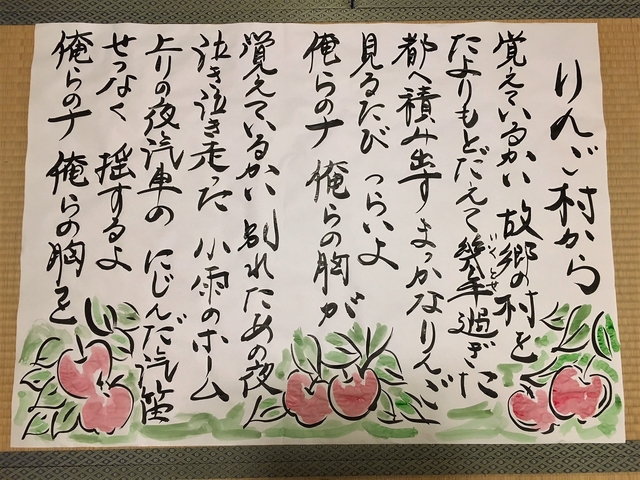 りんご村から
覚えているかい 故郷の村を
たよりもとだえて幾年過ぎた
いくとせ
都へ積み出す まっかなりんご
見るたび つらいよ
俺らのナ 俺らの胸が
覚えているかい 別れたあの夜
泣き泣き走った 小雨のホーム
上りの夜汽車の にじんだ汽笛
せつなく 揺するよ
俺らのナ 俺らの胸を